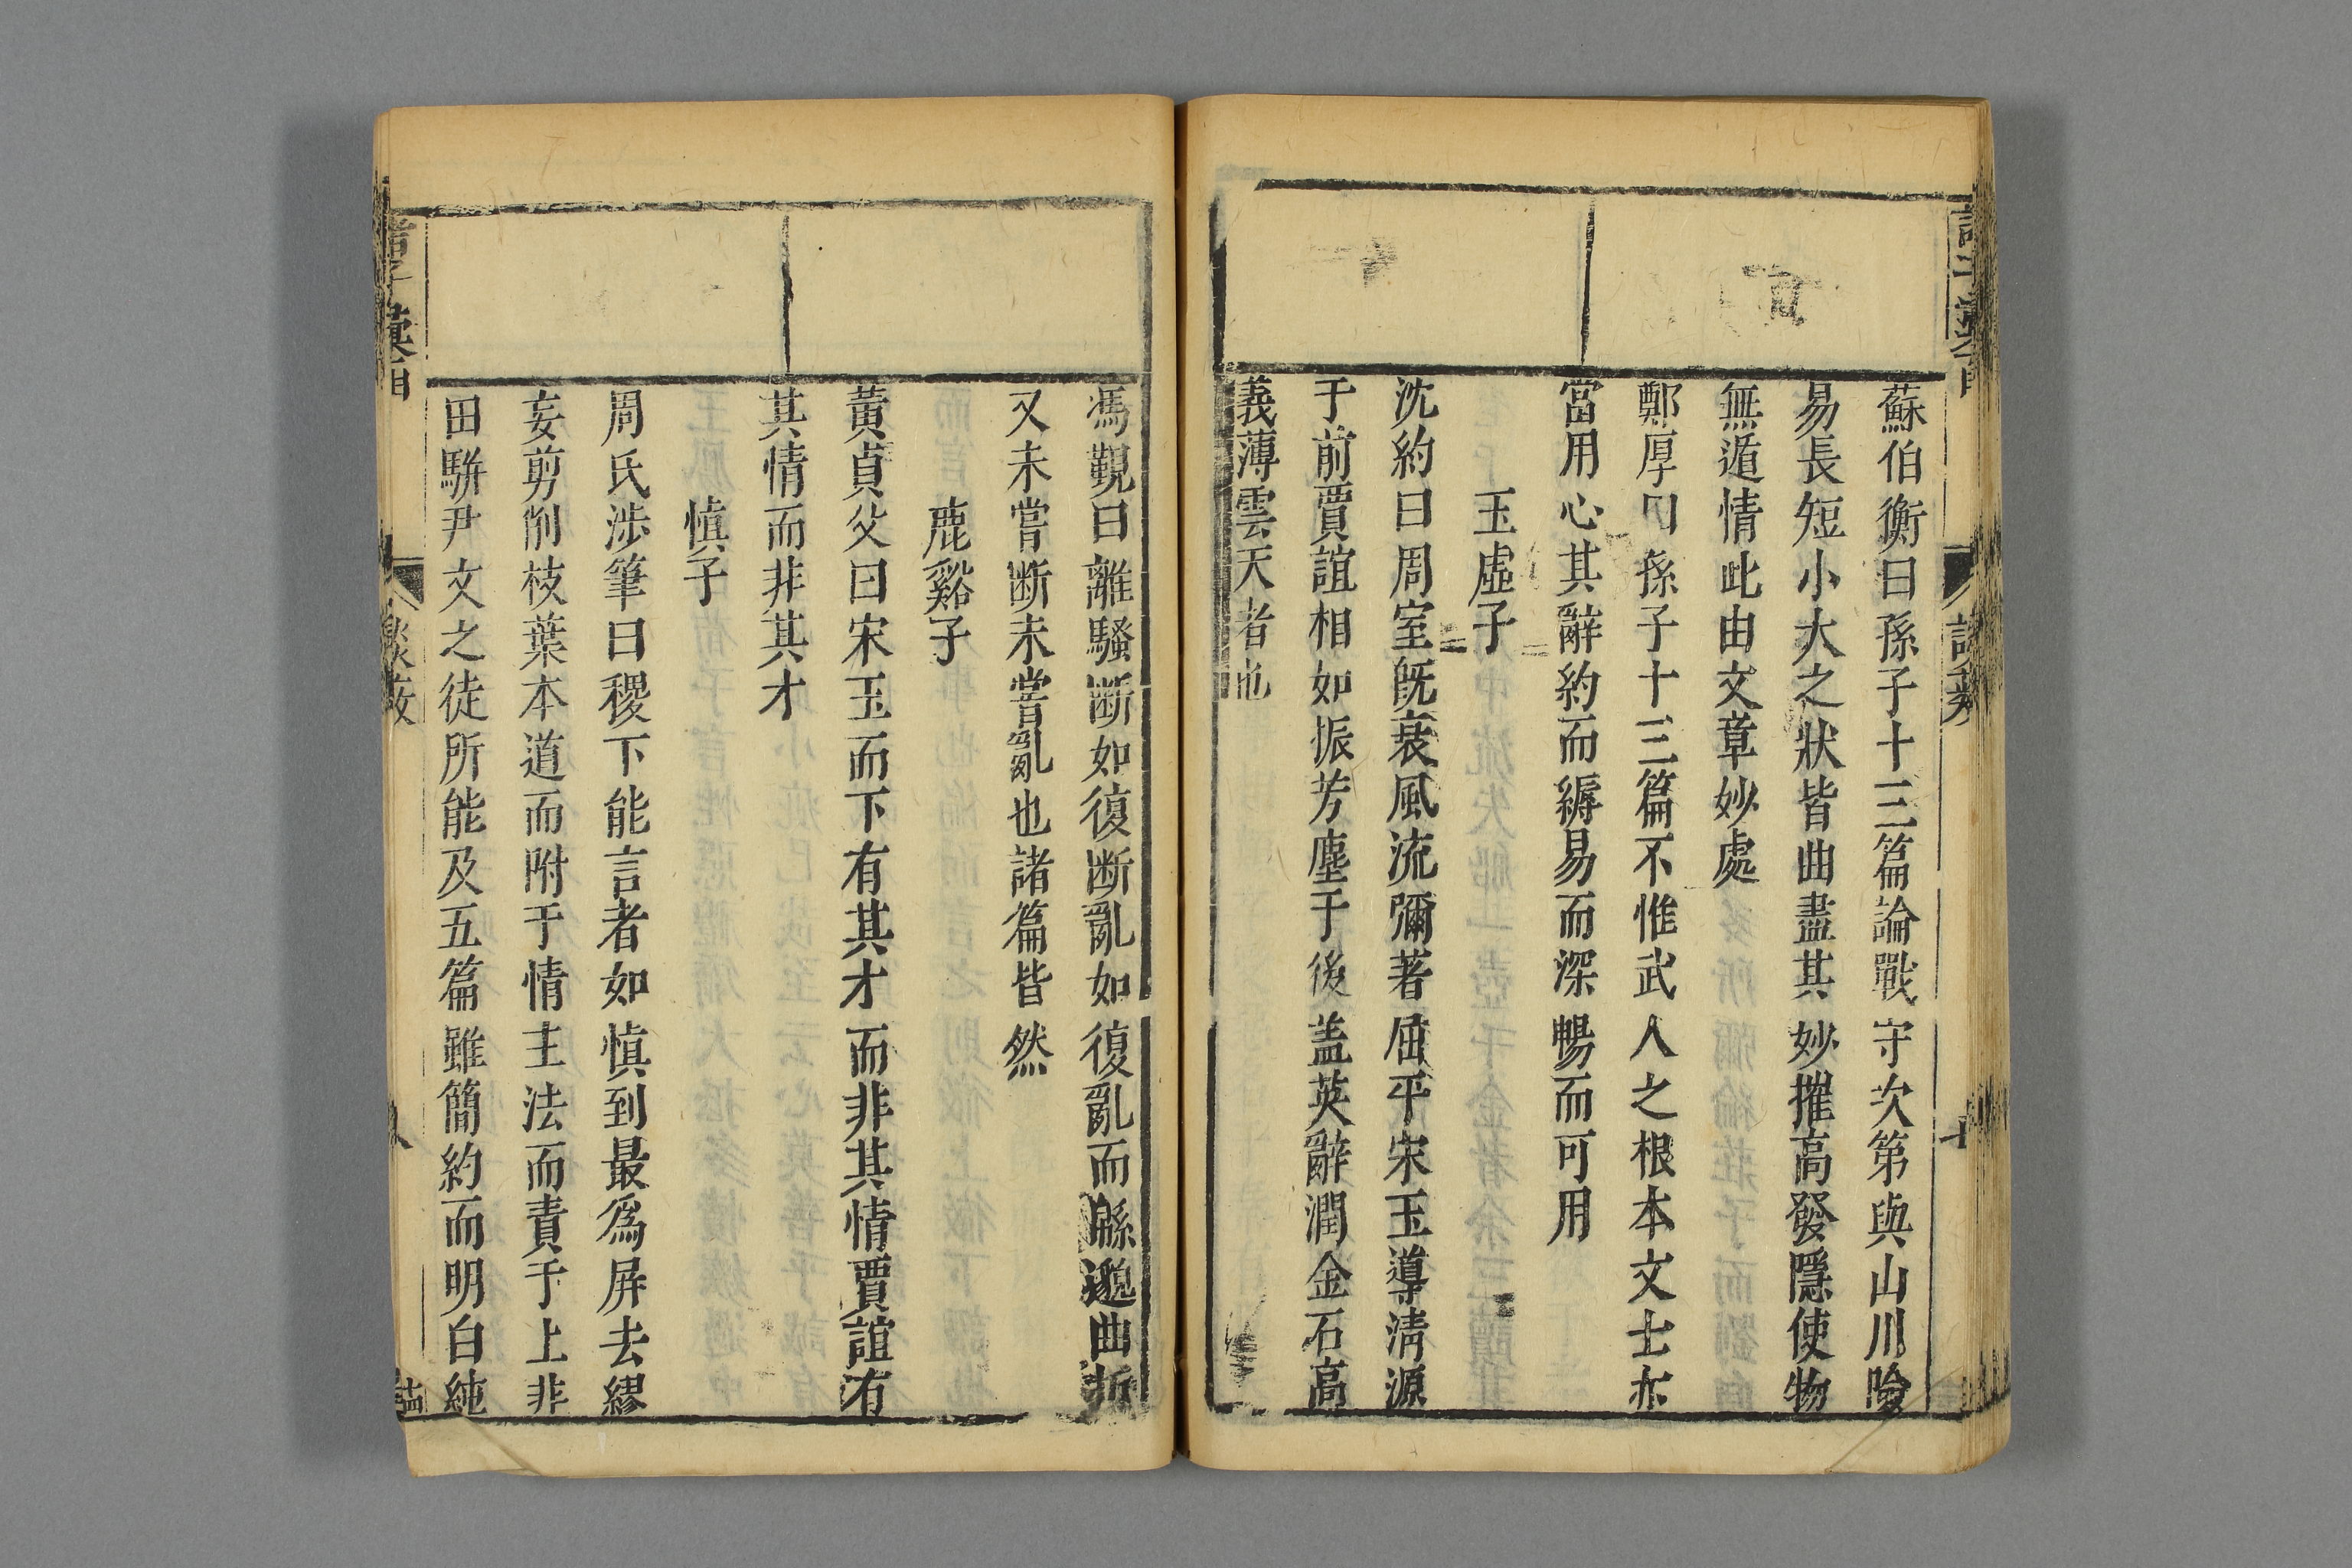 蘇伯衡曰孫子十三篇論戰守次第與山川險
易長短小大之狀皆曲盡其妙摧高發隱使物
無遁情此由文章妙處
鄭厚曰孫子十三篇不惟武人之根本文士亦
當用心其辭約而縟易而深暢而可用
玉虛子
沈約曰周室旣衰風流彌著屈平宋玉導淸源
于前賈誼相如振芳塵于後盖英辭潤金石高
義薄雲天者也
馮覲曰離騷断如復断亂如復亂而緜邈曲折
又未嘗断未嘗亂也諸篇皆然
鹿谿子
黃貞父曰宋玉而下有其才而非其情賈誼有
其情而非其才
慎子
周氏渉筆曰稷下能言者如慎到最爲屏去繆
妄剪削枝葉本道而附于情主法而責于上非
田騈尹文之徒所能及五篇雖簡約而明白純